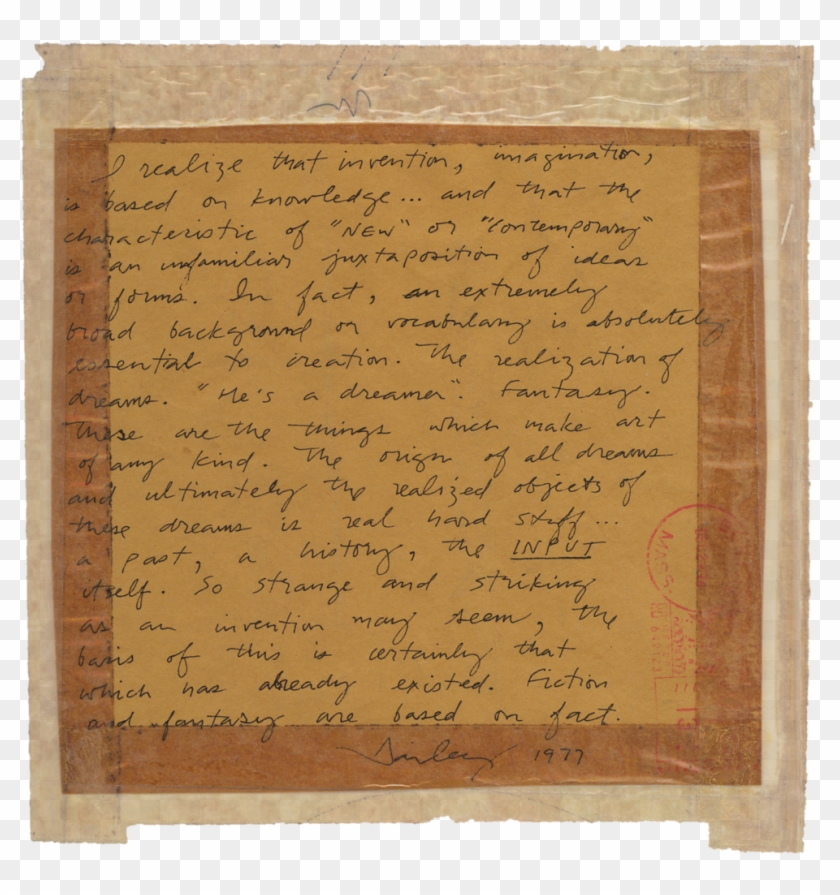 I realize that invention, imagination,
is based on knowledge... and that the
characteristic of "NEW" or "contemporary"
is an unfamiliar juxtaposition of ideas
or forms. In fact, an extremely
broad background or vocabulary is absolutely
essential to creation. The realization of
dreams. "He's a dreamer". Fantasy.
These are the things which make art
of any kind. The origin of all dreams
and ultimately the realized objects of
these dreams is real hard stuff...
a past, a history, the INPUT
itself. So strange and striking
as an invention may seem, the
basis of this is certainly that
which has already existed. Fiction
and fantasy are based on fact.
1977
MASS